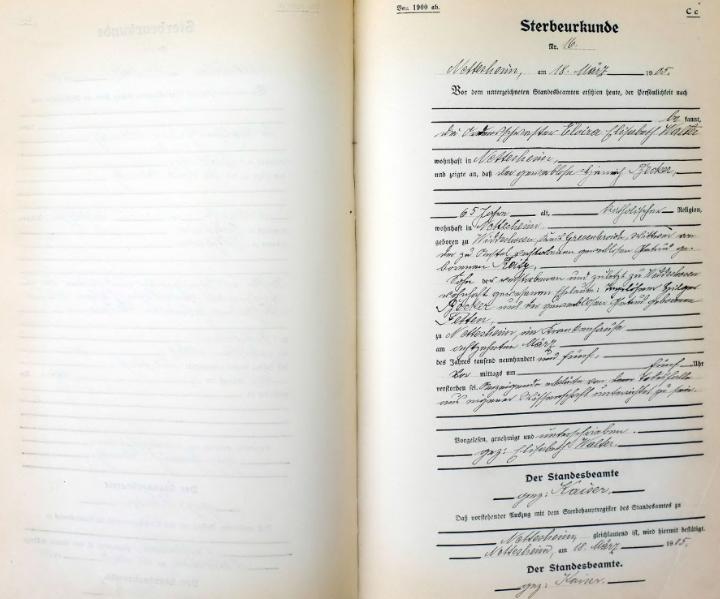 Vom 1900 ab.
C c
Sterbeurkunde
Nr. 16.
Nettersheim, am 18. März 1905.
Vor dem unterzeichneten Standesbeamten erschien heute, der Persönlichkeit nach
be kannt,
die Ordensschwester Elvira Elisabeth Walter
wohnhaft in Nettersheim,
und zeigte an, daß der gewerblose Heinrich Becker,
65 Jahre alt, katholischer Religion,
wohnhaft in Nettersheim
geboren zu Kreis Grevenbroich, Wittwer von
der zu verstorbenen gewerblosen ge-
bornenen Reitz,
Sohn der verstorbenen und zuletzt zu
wohnhaft gewesenen Eheleute:
Becker und der gewerblosen geborenen
Fetten,
zu Nettersheim im Krankenhause
am achtzehnten März
des Jahres tausend neunhundert und fünf,
Vor mittags um fünf Uhr
verstorben sei. Anzeigende erklärte von dem Todesfalle
aus eigener Wissenschaft unterrichtet zu sein.
Vorgelesen, genehmigt und unterschrieben.
gez: Elisabeth Walter.
Der Standesbeamte
gez: Kaiser.
Daß vorstehender Auszug mit dem Sterbehauptregister des Standesamtes zu
Nettersheim gleichlautend ist, wird hiermit bestätigt.
Nettersheim, am 18. März 1905.
Der Standesbeamte.
gez: Kaiser.